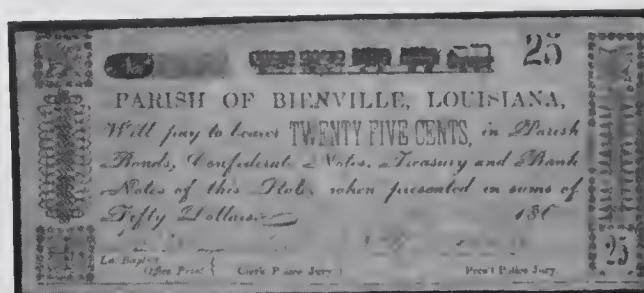 No 25
PARISH OF BIENVILLE, LOUISIANA,
Will pay to bearer TWENTY FIVE CENTS, in Parish
Bonds, Confederate Notes, Treasury and Bank
Notes of this State, when presented in sums of
Fifty Dollars. 186
La. Baptist
Office Print { Clerk Police Jury. Pres't Police Jury. 25